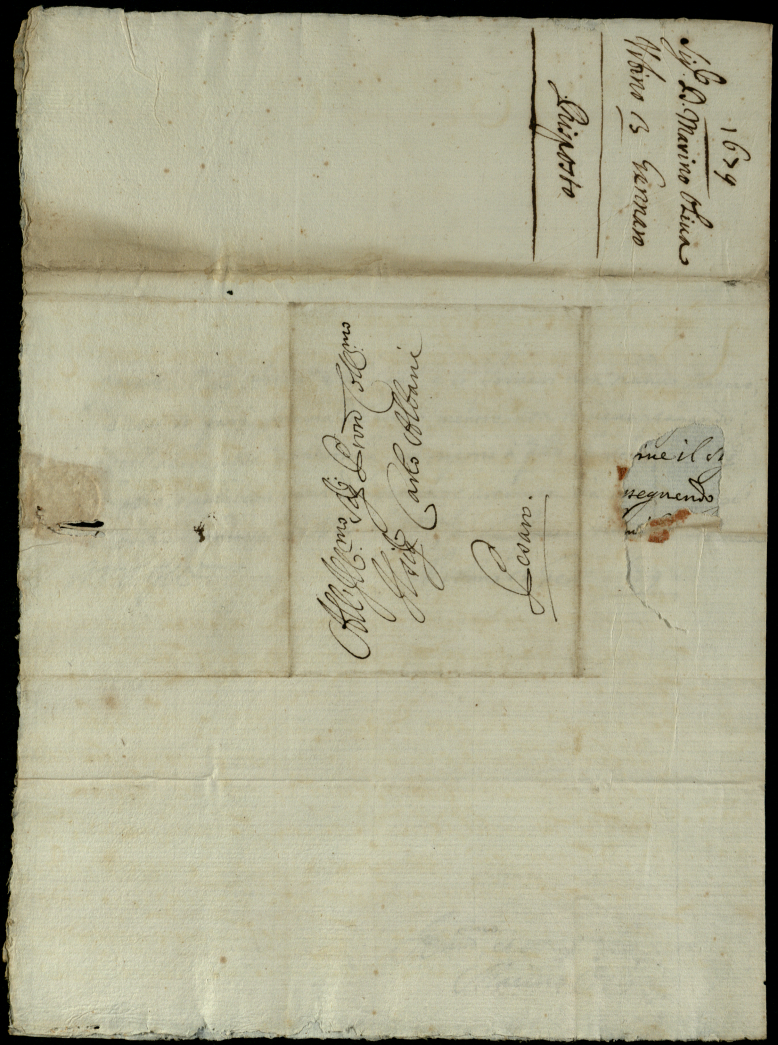 1679
Sig.r D. Marino Olina
Urbino 13 Gennaro
Risposto
All Ill.mo Sig.r Pron Coll.mo
Il Sig.r Carlo Albani
Pesaro.
me il
seguendo